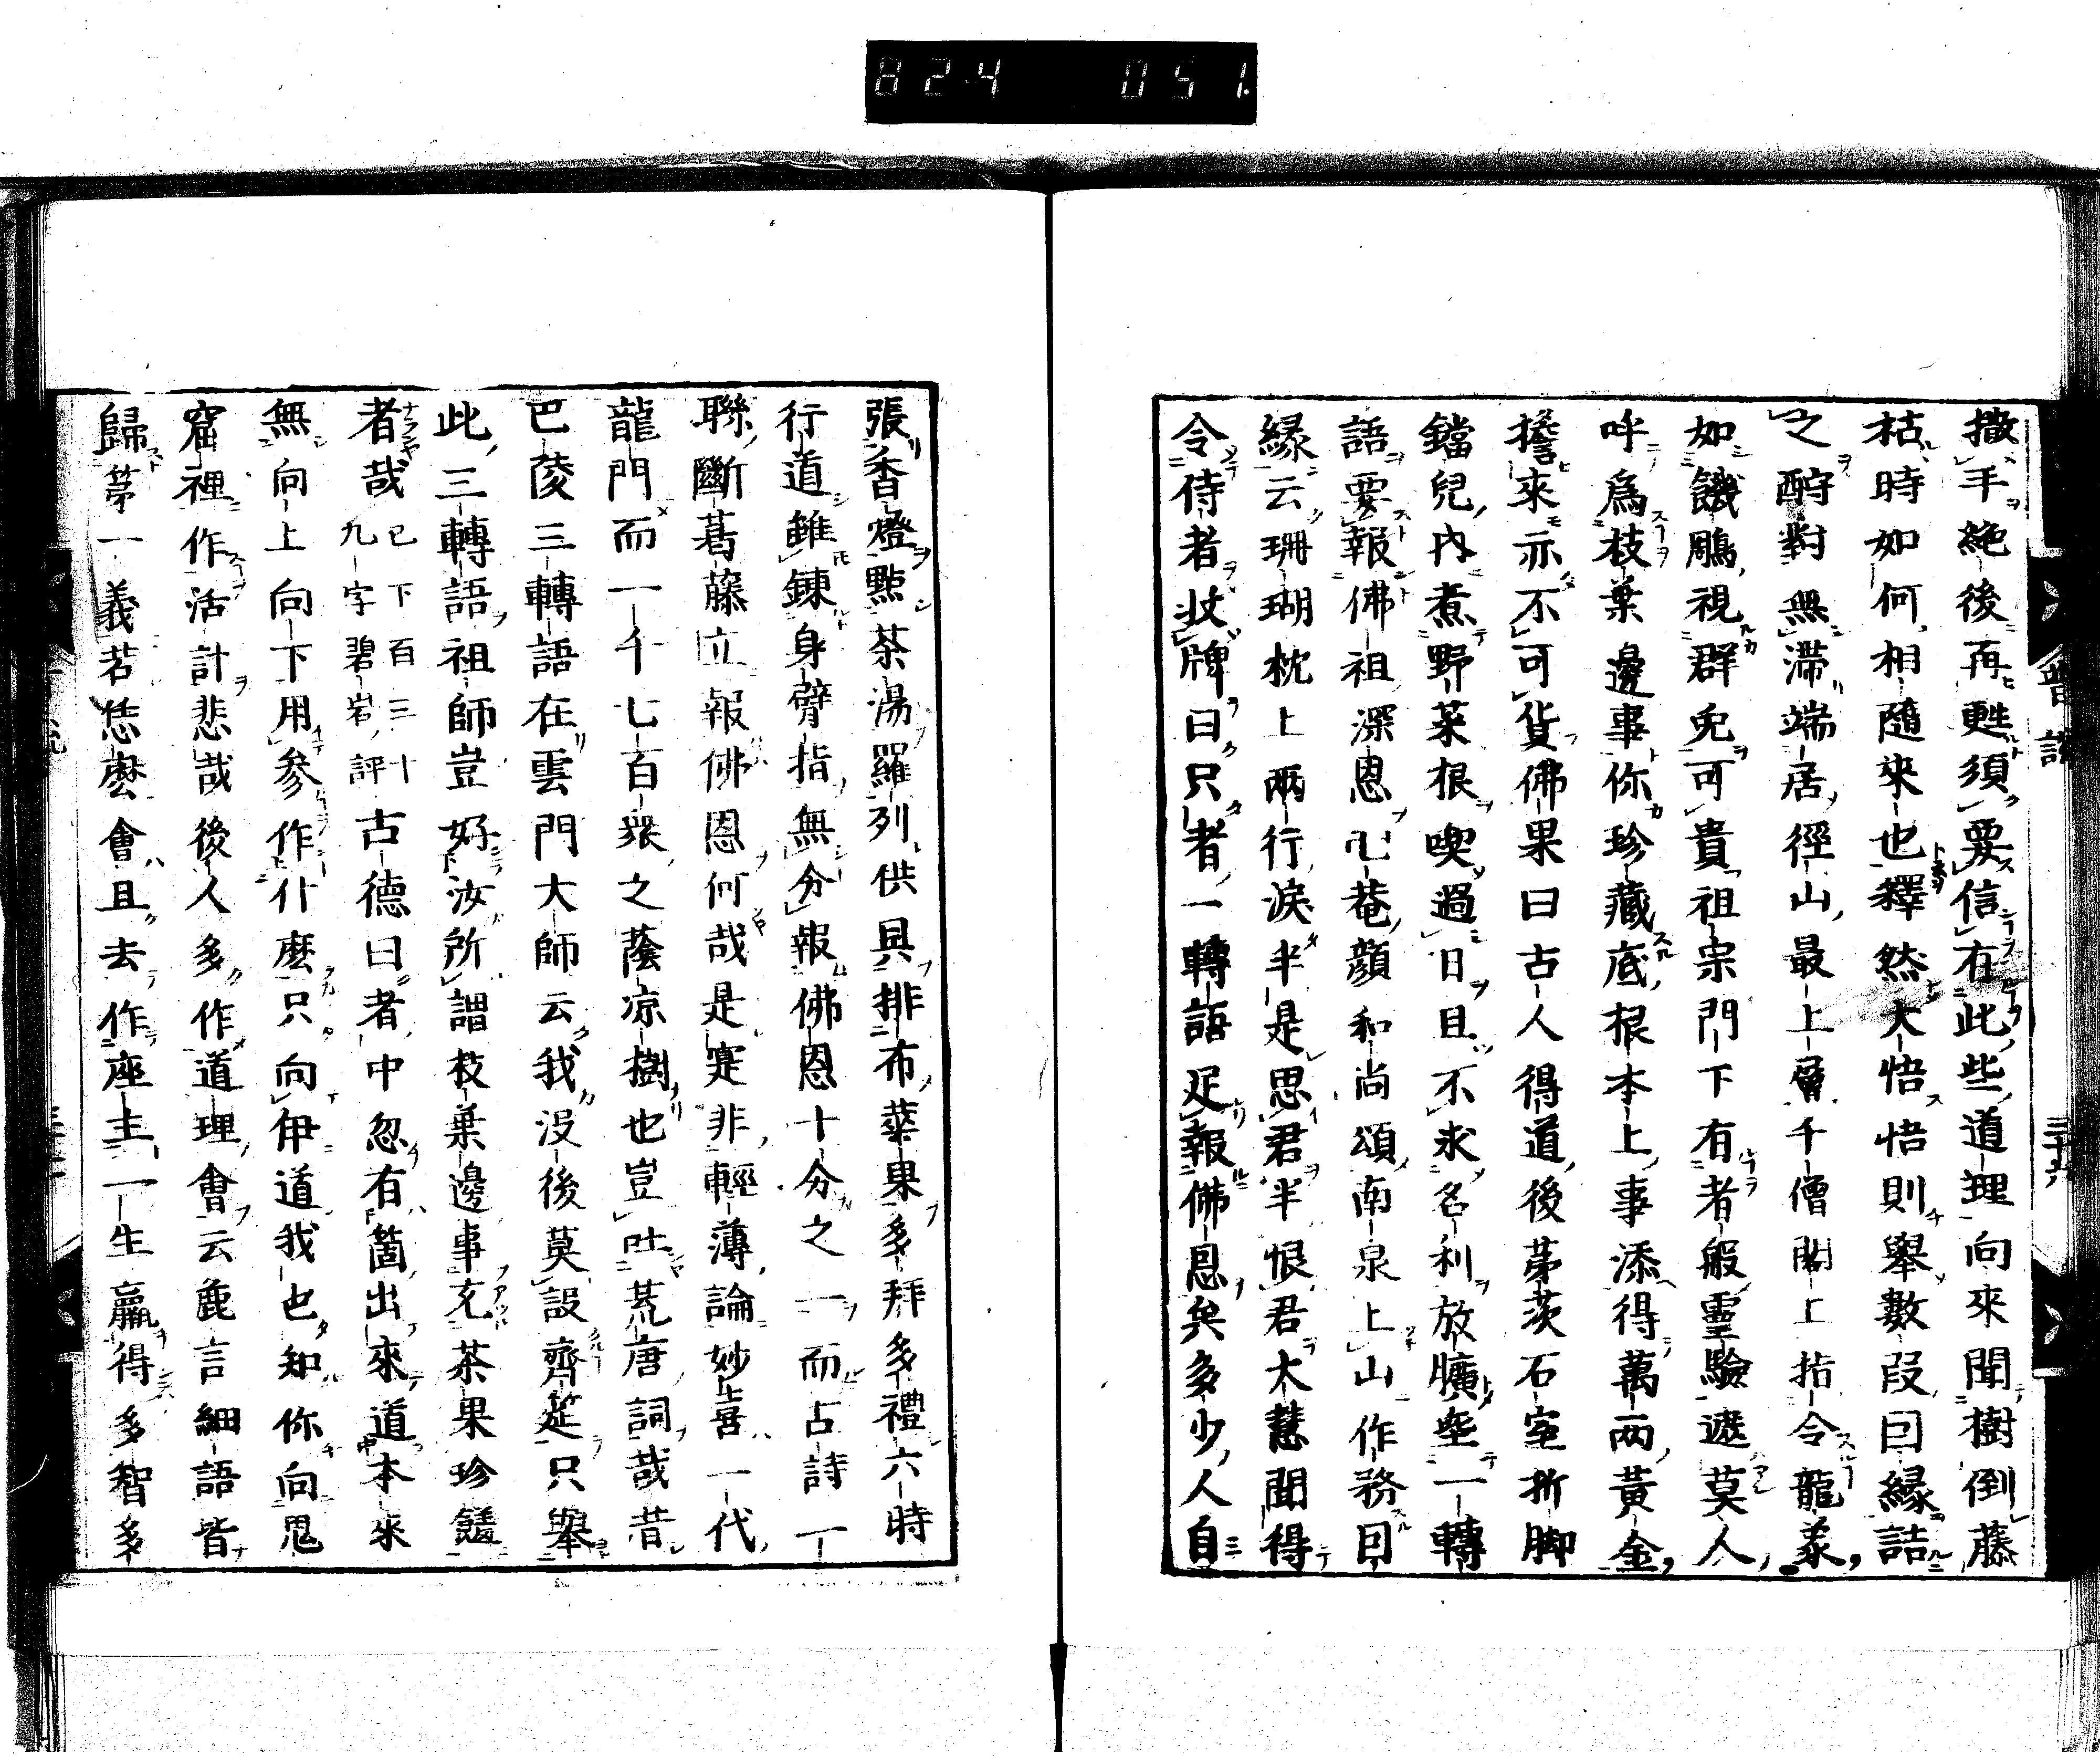 824 051
普説
三十六
撒手絶後再甦須要信有此些道理向來聞樹倒藤
枯時如何相隨來也釋然大悟悟則擧數段因縁詰
之酧對無滯端居徑山最上層千僧閣上指令龍象
如饑鵰視群兔可貴祖宗門下有者般靈驗遮莫人
呼爲枝葉邊事你珍藏底根本上事添得萬兩黄金
擔來亦不可貨佛果曰古人得道後茅茨石室折脚
鐺兒内煮野菜根喫過日且不求名利放曠埀一轉
語要報佛祖深恩卍菴顔和尚頌南泉上山作務因
縁云珊瑚枕上兩行淚半是思君半恨君大慧聞得
令侍者收牌曰只者一轉語足報佛恩矣多少人自
張香燈點茶湯羅列供具排布華果多拜多禮六時
行道雖錬身臂指無分報佛恩十分之一而占詩一
聯斷葛藤立報佛恩何哉是寔非輕薄論妙喜一代
龍門而一千七百衆之蔭凉樹也豈吐荒唐詞哉昔
巴陵三轉語在雲門大師云我没後莫設齊筵只擧
此三轉語祖師豈好汝所謂枝葉邊事充茶果珍饈
者哉已下百三十九字碧岩評古德曰者中忽有箇出來道本來
無向上向下用參作什麽只向伊道我也知你向鬼
窟裡作活計悲哉後人多作道理會云麁言細語皆
歸第一義若恁麽會且去作座主一生贏得多智多